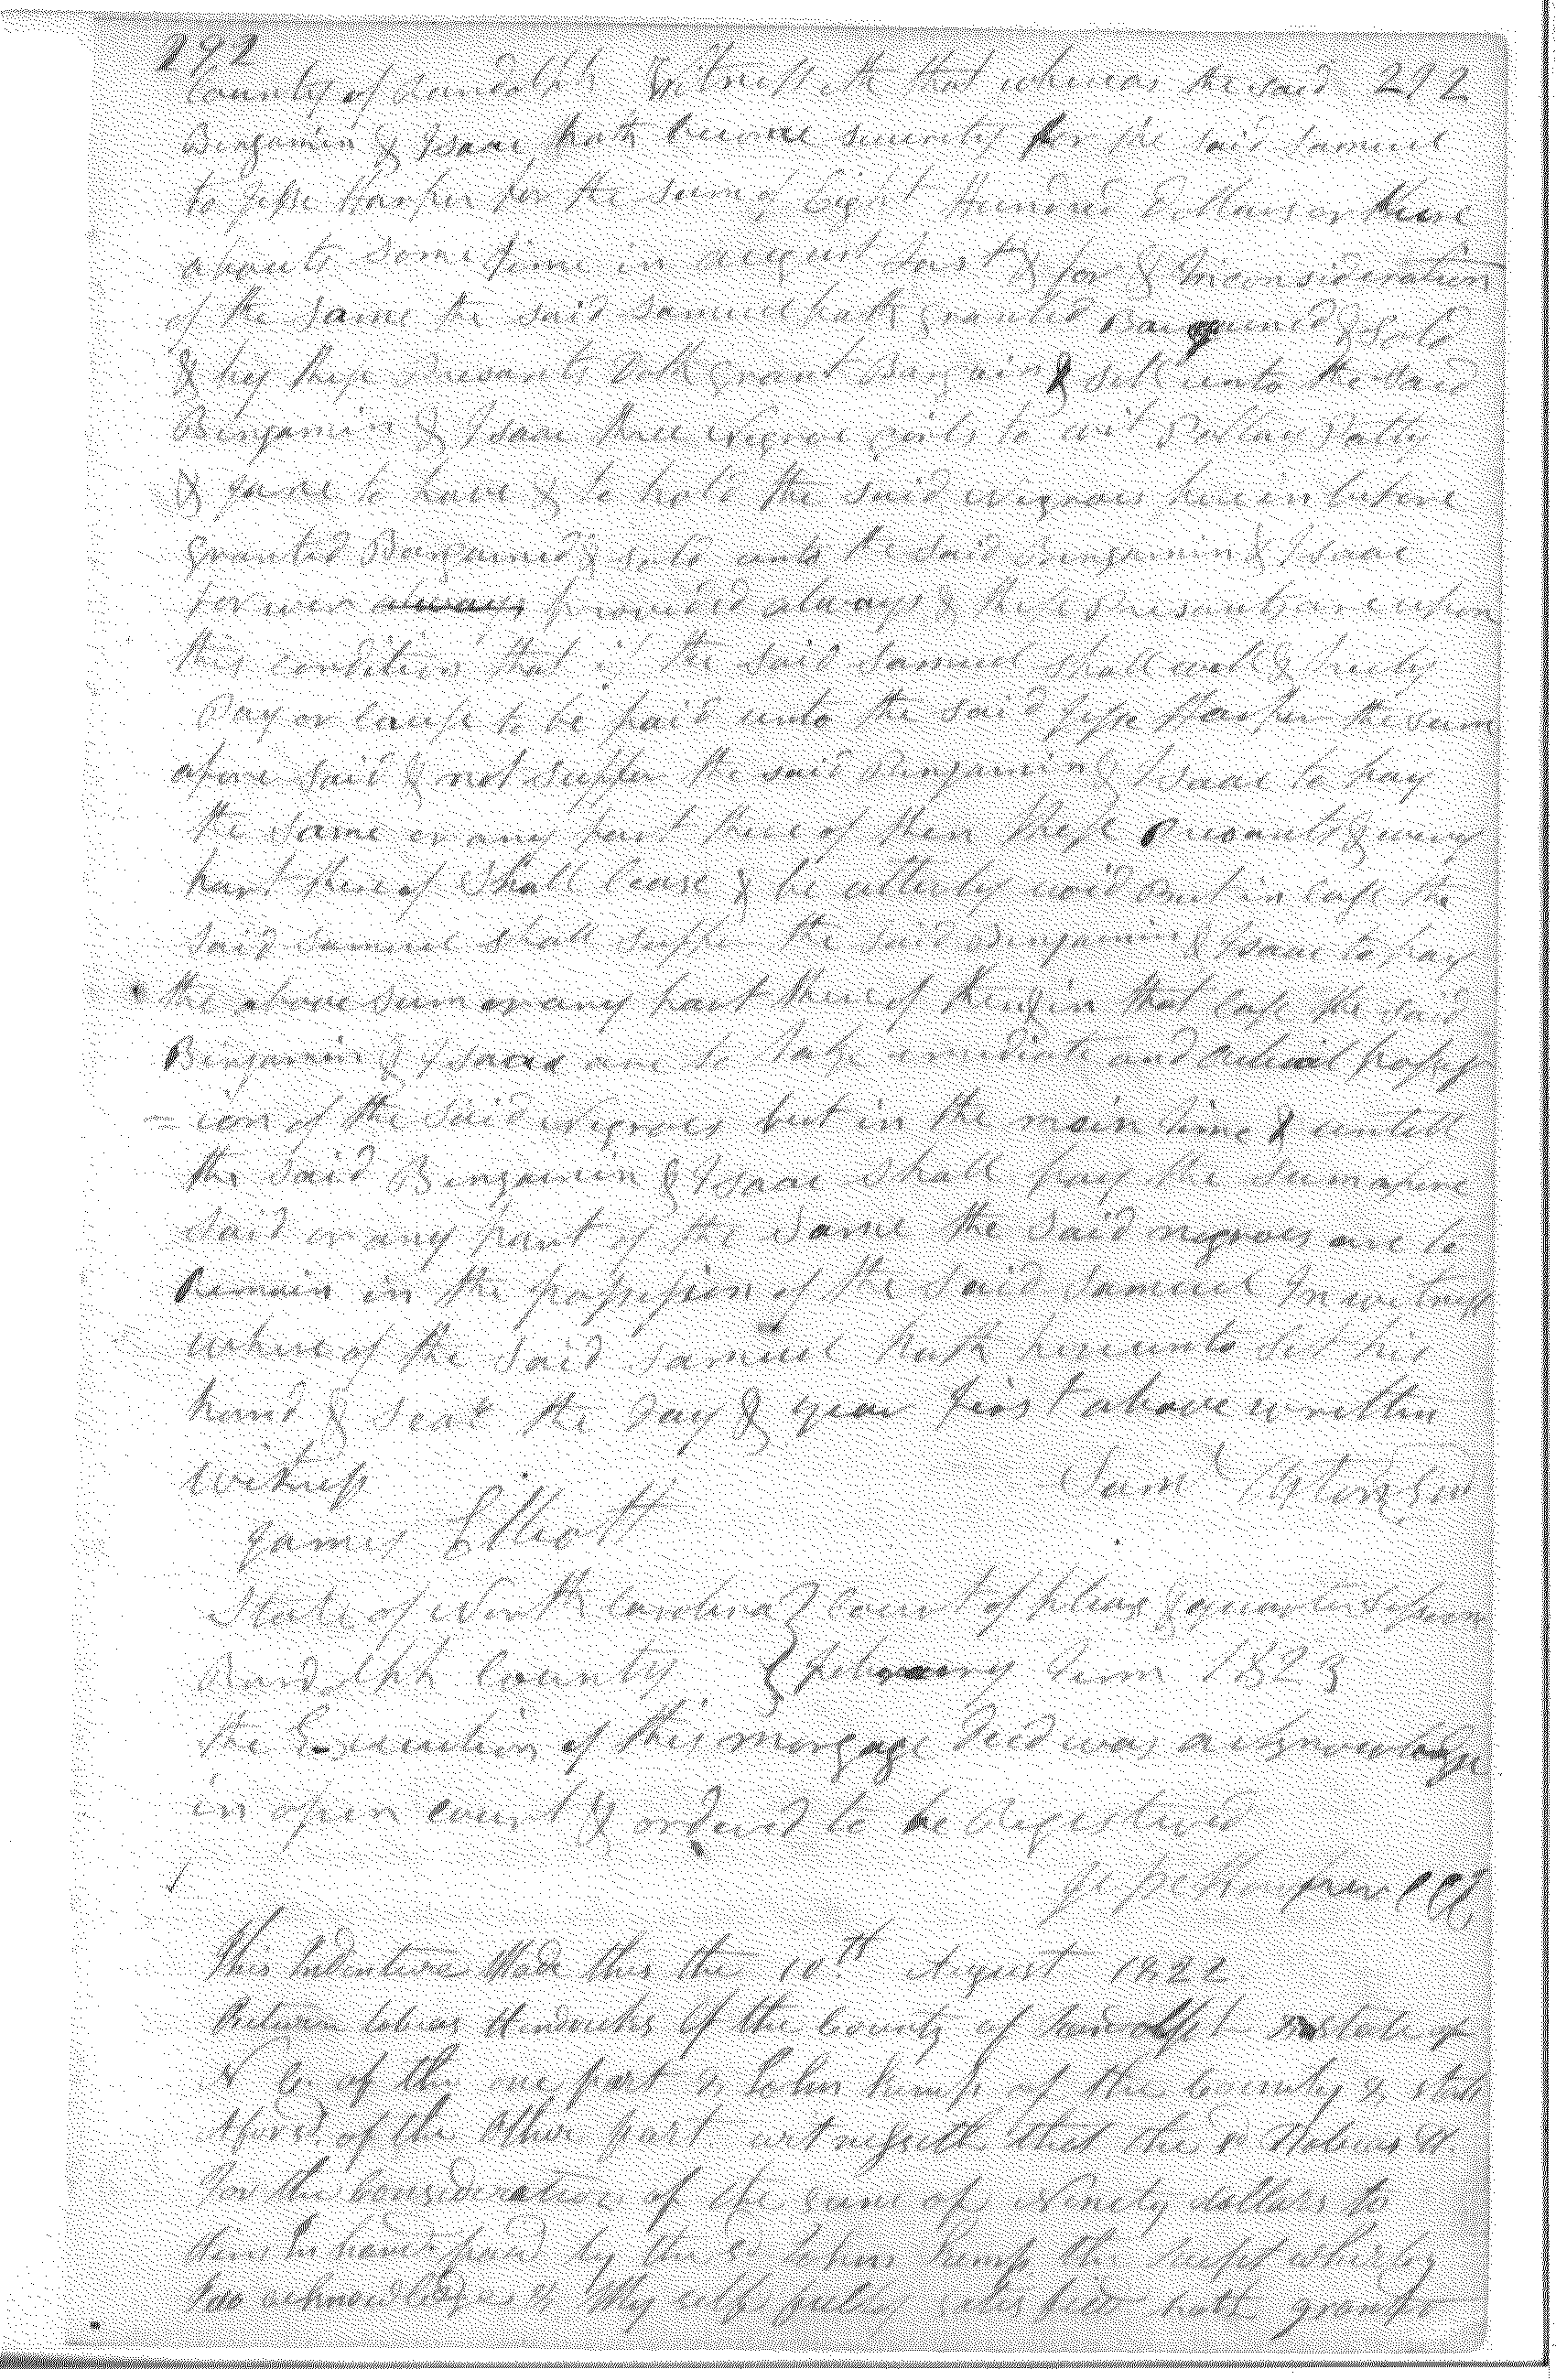 292
County of Randolph Witnesseth that whereas the said 292
Benjamin & Isaac hath become security for the said Samuel
to Jesse Harper for the sum of Eight Hundred Dollars or there
abouts some time in august last & for & Inconsideration
of the same the said Samuel hath granted Bargained & Sold
& by these Presants doth grant Bargain & sell unto the said
Benjamin & Isaac three Negroe girls to wit Patty
& Jane to have & to hold the said Negroes herein before
granted Bargained & sold unto the said Benjamin & Isaac
forever always provided always & these Presants are upon
this condition that if the said Samuel shall well & truly
Pay or cause to be paid unto the said Jesse Harper the sum
afore said & not suffer the said Benjamin & Isaac to pay
the same or any part there of then these Presants & every
part there of Shall Cease & be utterly void But in case the
said Samuel shall suffer the said Benjamin & Isaac to pay
the above sum or any part there of then & in that case the said
Benjamin & Isaac are to take imediate and actual possess
- ion of the said Negroes but in the mein time & untill
the said Benjamin & Isaac shall pay the sum afore
said or any part of the same the said negroes are to
Remain in the possession of the said Samuel In witness
where of the said Samuel hath hereunto set his
hand & seal the Day & year first above written
Witness Saml
James Elliott
State of North Carolina } Court of pleas & quarter Session
Randolph County } february term 1823
the Execution of this morgage Deed was acknowledge
in open court & ordered to be Registered
Jesse Harper CC
This Indenture Made this the 10th August 1822
Between tobias Hendricks of the County of Randolph state of
N Ca of the one part & John Kemp of the County & State
Aforsd of the other part witnesseth that the sd Tobias H
For the consideration of the sum of Ninety dollars to
him In hand paid by the sd John Kemp the recept whereby
I do acknowledge & My self fully satisfied hath granted